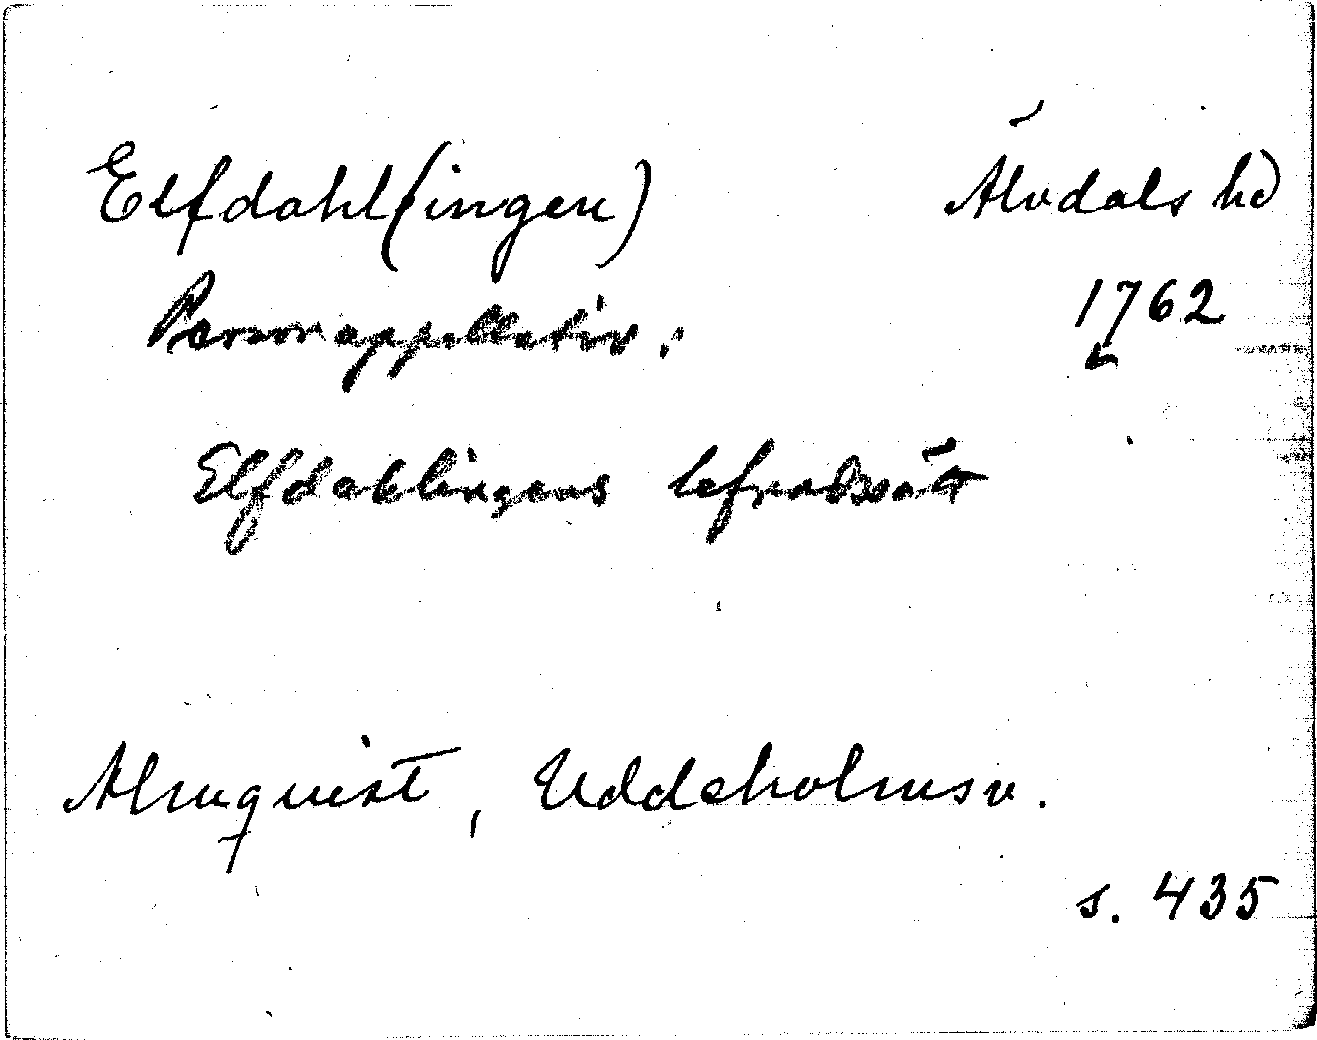 Elfdahl(ingen) Älvdals hd
Personappellativ. 1762
Elfdahlingens lefnadssätt
Almquist, Uddeholmsv.
s. 435